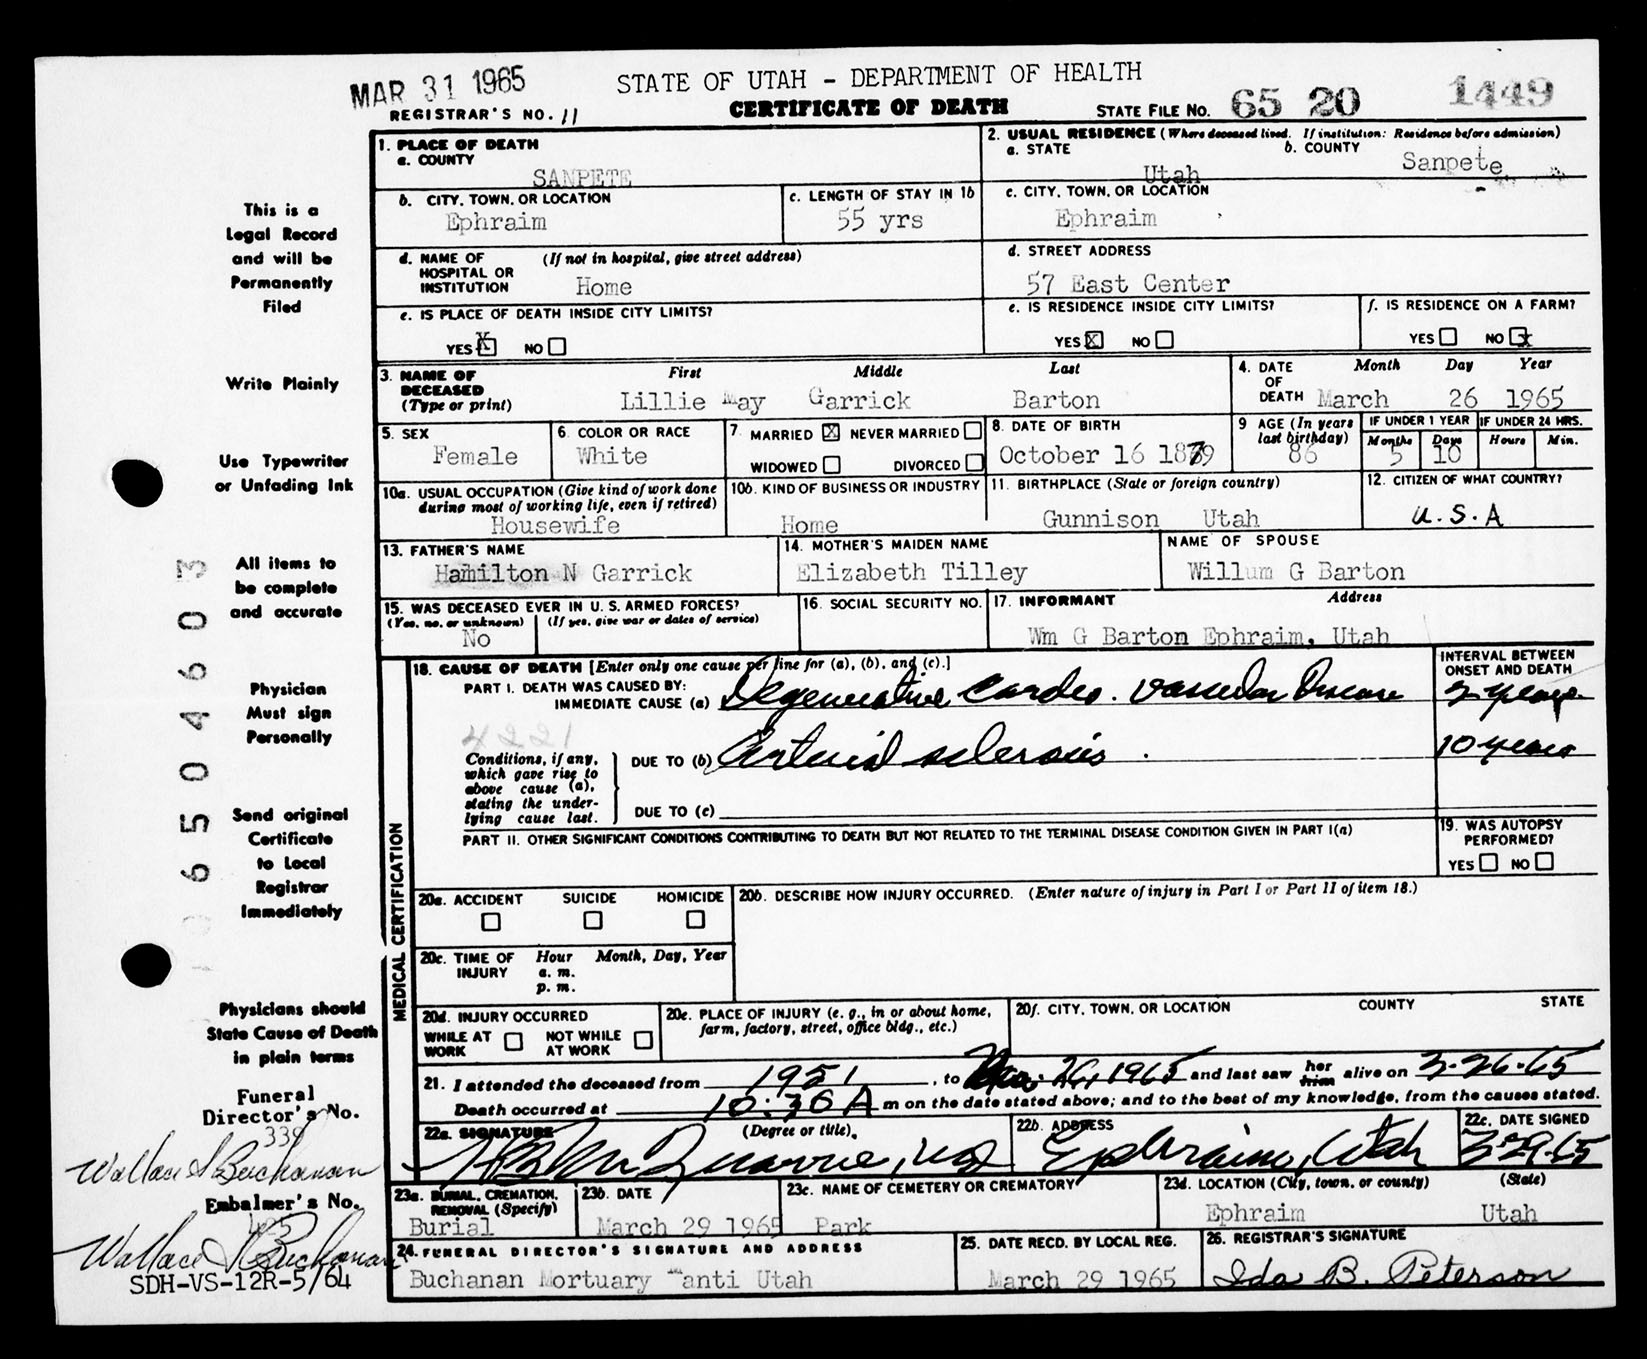 MAR 31 1965
STATE OF UTAH - DEPARTMENT OF HEALTH
REGISTRAR'S NO. 11
CERTIFICATE OF DEATH
STATE FILE NO. 65 20 1449
This is a
Legal Record
and will be
Permanently
Filed
Write Plainly
Use Typewriter
or Unfading Ink
All items to
be complete
and accurate
Physician
Must sign
Personally
Send original
Certificate
to Local
Registrar
Immediately
Physicians should
State Cause of Death
in plain terms
Funeral
Director's No.
339
Wallace S Buchanan
Embalmer's No.
Wallace S Buchanan
SDH-VS-12R-5/64
650 4603
1. PLACE OF DEATH
a. COUNTY
SANPETE
2. USUAL RESIDENCE (Where deceased lived. If institution: Residence before admission)
a. STATE
Utah
b. COUNTY
Sanpete
b. CITY, TOWN, OR LOCATION
Ephraim
c. LENGTH OF STAY IN 1b
55 yrs
c. CITY, TOWN, OR LOCATION
Ephraim
d. NAME OF HOSPITAL OR INSTITUTION (If not in hospital, give street address)
Home
d. STREET ADDRESS
57 East Center
e. IS PLACE OF DEATH INSIDE CITY LIMITS?
YES X NO
e. IS RESIDENCE INSIDE CITY LIMITS?
YES X NO
f. IS RESIDENCE ON A FARM?
YES NO x
3. NAME OF DECEASED (Type or print)
First Middle Last
Lillie May Garrick Barton
4. DATE OF DEATH
Month Day Year
March 26 1965
5. SEX
Female
6. COLOR OR RACE
White
7. MARRIED X NEVER MARRIED
WIDOWED DIVORCED
8. DATE OF BIRTH
October 16 1879
9 AGE (In years last birthday)
86
IF UNDER 1 YEAR
Months Days
5 10
IF UNDER 24 HRS.
Hours Min.
10a. USUAL OCCUPATION (Give kind of work done during most of working life, even if retired)
Housewife
10b. KIND OF BUSINESS OR INDUSTRY
Home
11. BIRTHPLACE (State or foreign country)
Gunnison Utah
12. CITIZEN OF WHAT COUNTRY?
U.S.A
13. FATHER'S NAME
Hamilton N Garrick
14. MOTHER'S MAIDEN NAME
Elizabeth Tilley
NAME OF SPOUSE
Willum G Barton
15. WAS DECEASED EVER IN U. S. ARMED FORCES?
(Yes, no, or unknown) (If yes, give war or dates of service)
No
16. SOCIAL SECURITY NO.
17. INFORMANT Address
Wm G Barton Ephraim, Utah
MEDICAL CERTIFICATION
18. CAUSE OF DEATH [Enter only one cause per line for (a), (b), and (c).]
INTERVAL BETWEEN ONSET AND DEATH
PART I. DEATH WAS CAUSED BY:
IMMEDIATE CAUSE (a) Degenerative Cardio. Vascular Disease
years
4221
Conditions, if any, which gave rise to above cause (a), stating the underlying cause last.
DUE TO (b) Arterial sclerosis.
10 years
DUE TO (c)
PART II. OTHER SIGNIFICANT CONDITIONS CONTRIBUTING TO DEATH BUT NOT RELATED TO THE TERMINAL DISEASE CONDITION GIVEN IN PART I(a)
19. WAS AUTOPSY PERFORMED?
YES NO
20a. ACCIDENT SUICIDE HOMICIDE
20b. DESCRIBE HOW INJURY OCCURRED. (Enter nature of injury in Part I or Part II of item 18.)
20c. TIME OF INJURY
Hour Month, Day, Year
a. m.
p. m.
20d. INJURY OCCURRED
WHILE AT WORK NOT WHILE AT WORK
20e. PLACE OF INJURY (e. g., in or about home, farm, factory, street, office bldg., etc.)
20f. CITY, TOWN, OR LOCATION COUNTY STATE
21. I attended the deceased from 1951, to 26, 1965 and last saw her him alive on 3-26-65
Death occurred at 10:30 A m on the date stated above; and to the best of my knowledge, from the causes stated.
22a. SIGNATURE (Degree or title).
22b. ADDRESS
Ephraim, Utah
22c. DATE SIGNED
3-29-65
23a. BURIAL, CREMATION, REMOVAL (Specify)
Burial
23b. DATE
March 29 1965
23c. NAME OF CEMETERY OR CREMATORY
Park
23d. LOCATION (City, town, or county) (State)
Ephraim Utah
24. FUNERAL DIRECTOR'S SIGNATURE AND ADDRESS
Buchanan Mortuary Manti Utah
25. DATE RECD. BY LOCAL REG.
March 29 1965
26. REGISTRAR'S SIGNATURE
Ida B. Peterson